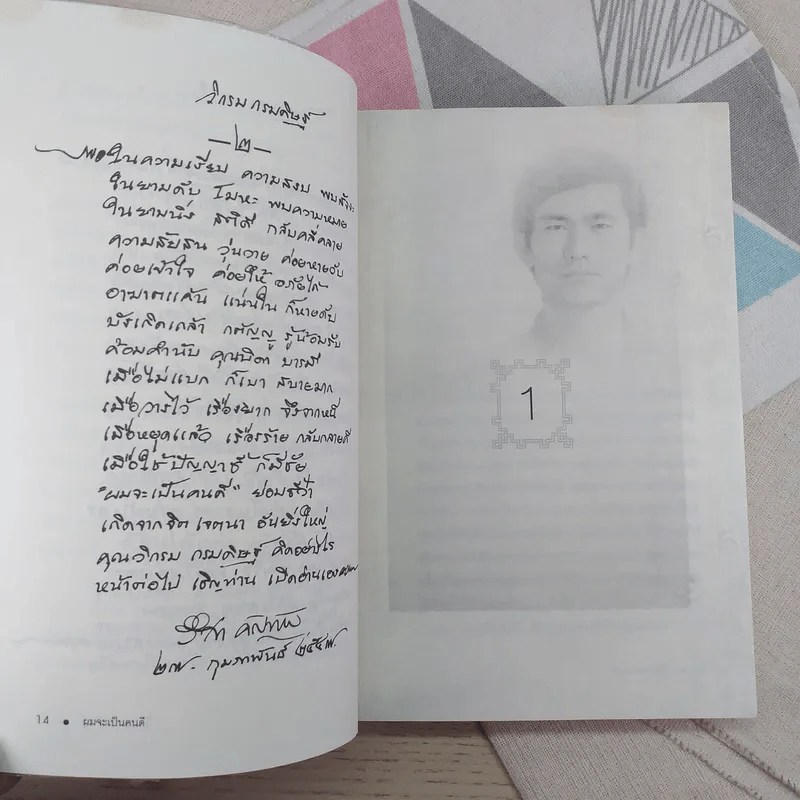 วิกรม กรมดิษฐ์
—๒—
ในความเงียบ ความสงบ พบ
ในยามดับ โมหะ พบความหมาย
ในยามนิ่ง สติมี กลับคลี่คลาย
ความสับสน วุ่นวาย ค่อยหายลับ
ค่อยเข้าใจ ค่อยให้ อภัยได้
อาฆาตแค้น แน่นใน ก็หายดับ
บังเกิดเกล้า กตัญญู รู้น้อมรับ
ค้อมคำนับ คุณบิดา บารมี
เมื่อไม่แบก ก็เบา สบายมาก
เมื่อวางไว้ เรื่องยาก จึงจากหนี
เมื่อหยุดแล้ว เรื่องร้าย กลับกลายดี
เมื่อใช้ปัญญาชี้ ก็มีชัย
"ผมจะเป็นคนดี" ย่อมชี้ว่า
เกิดจากจิต เจตนา อันยิ่งใหญ่
คุณวิกรม กรมดิษฐ์ คิดอย่างไร
หน้าต่อไป เชิญท่าน เปิดอ่านเอง
๒๗ กุมภาพันธ์ ๒๕๔๗
14 • ผมจะเป็นคนดี
1